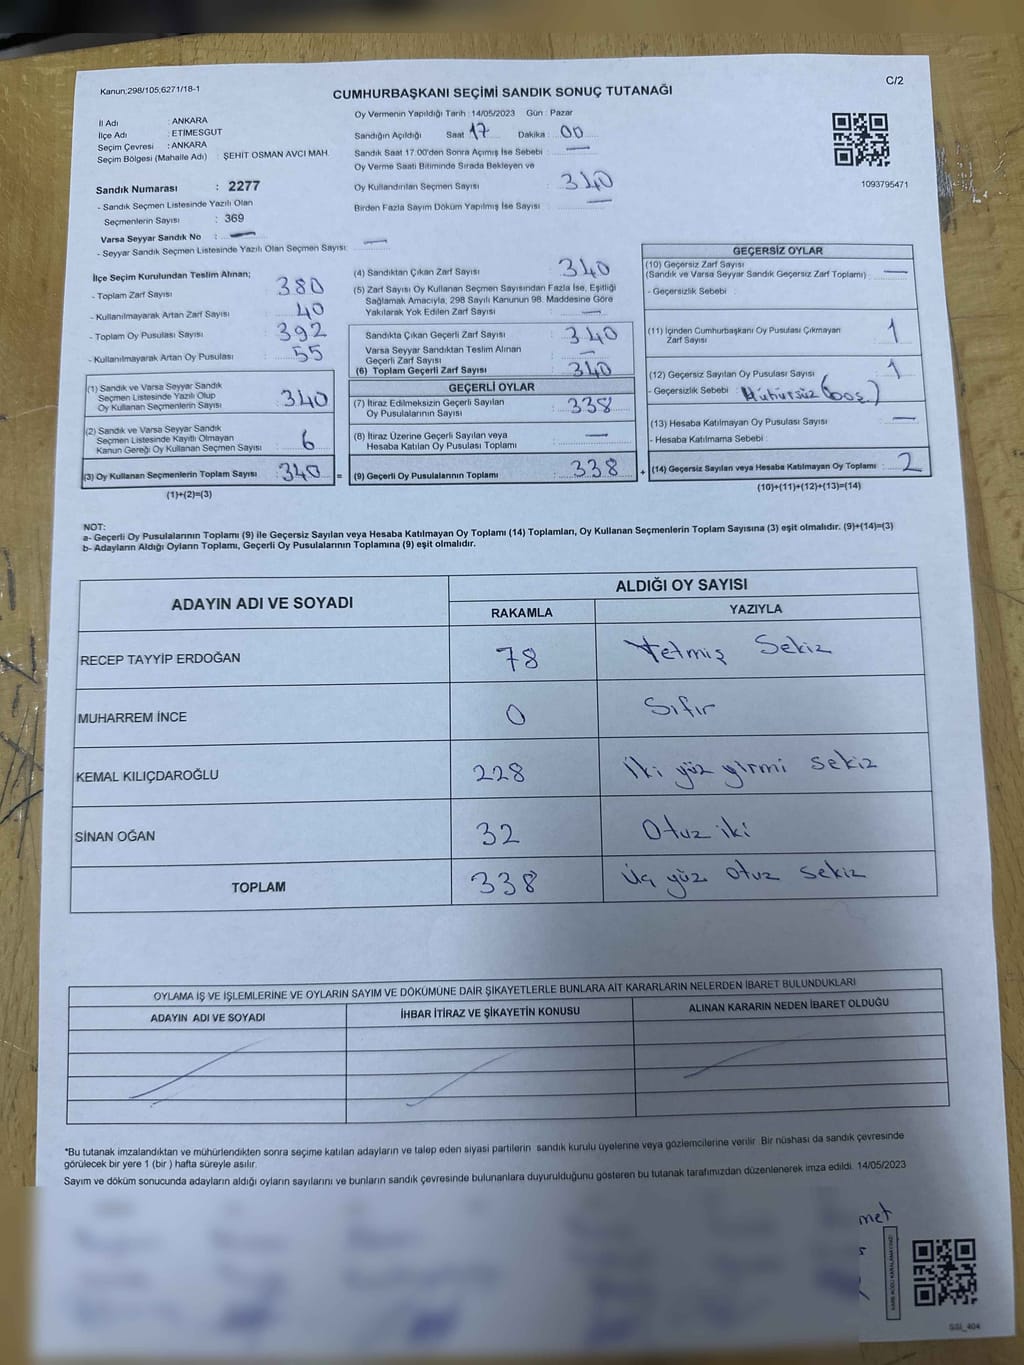 Kanun;298/105;6271/18-1
C/2
CUMHURBAŞKANI SEÇİMİ SANDIK SONUÇ TUTANAĞI
İl Adı : ANKARA
İlçe Adı : ETİMESGUT
Seçim Çevresi : ANKARA
Seçim Bölgesi (Mahalle Adı) : ŞEHİT OSMAN AVCI MAH.
Sandık Numarası : 2277
- Sandık Seçmen Listesinde Yazılı Olan
Seçmenlerin Sayısı : 369
Varsa Seyyar Sandık No : —
- Seyyar Sandık Seçmen Listesinde Yazılı Olan Seçmen Sayısı: —
Oy Vermenin Yapıldığı Tarih : 14/05/2023 Gün : Pazar
Sandığın Açıldığı Saat : 17 Dakika : 00
Sandık Saat 17:00'den Sonra Açımış İse Sebebi : —
Oy Verme Saati Bitiminde Sırada Bekleyen ve
Oy Kullandırılan Seçmen Sayısı : 340
Birden Fazla Sayım Döküm Yapılmış İse Sayısı : —
1093795471
İlçe Seçim Kurulundan Teslim Alınan;
- Toplam Zarf Sayısı : 380
- Kullanılmayarak Artan Zarf Sayısı : 40
- Toplam Oy Pusulası Sayısı : 392
- Kullanılmayarak Artan Oy Pusulası : 55
(1) Sandık ve Varsa Seyyar Sandık
Seçmen Listesinde Yazılı Olup
Oy Kullanan Seçmenlerin Sayısı : 340
(2) Sandık ve Varsa Seyyar Sandık
Seçmen Listesinde Kayıtlı Olmayan
Kanun Gereği Oy Kullanan Seçmen Sayısı : 6
(3) Oy Kullanan Seçmenlerin Toplam Sayısı : 340 =
(1)+(2)=(3)
(4) Sandıktan Çıkan Zarf Sayısı : 340
(5) Zarf Sayısı Oy Kullanan Seçmen Sayısından Fazla İse, Eşitliği
Sağlamak Amacıyla, 298 Sayılı Kanunun 98. Maddesine Göre
Yakılarak Yok Edilen Zarf Sayısı : —
Sandıkta Çıkan Geçerli Zarf Sayısı : 340
Varsa Seyyar Sandıktan Teslim Alınan
Geçerli Zarf Sayısı : —
(6) Toplam Geçerli Zarf Sayısı : 340
GEÇERLİ OYLAR
(7) İtiraz Edilmeksizin Geçerli Sayılan
Oy Pusulalarının Sayısı : 338
(8) İtiraz Üzerine Geçerli Sayılan veya
Hesaba Katılan Oy Pusulası Toplamı : —
(9) Geçerli Oy Pusulalarının Toplamı : 338 +
GEÇERSİZ OYLAR
(10) Geçersiz Zarf Sayısı
(Sandık ve Varsa Seyyar Sandık Geçersiz Zarf Toplamı) : —
- Geçersizlik Sebebi :
(11) İçinden Cumhurbaşkanı Oy Pusulası Çıkmayan
Zarf Sayısı : 1
(12) Geçersiz Sayılan Oy Pusulası Sayısı : 1
- Geçersizlik Sebebi : Mühürsüz (boş)
(13) Hesaba Katılmayan Oy Pusulası Sayısı : —
- Hesaba Katılmama Sebebi :
(14) Geçersiz Sayılan veya Hesaba Katılmayan Oy Toplamı : 2
(10)+(11)+(12)+(13)=(14)
NOT:
a- Geçerli Oy Pusulalarının Toplamı (9) ile Geçersiz Sayılan veya Hesaba Katılmayan Oy Toplamı (14) Toplamları, Oy Kullanan Seçmenlerin Toplam Sayısına (3) eşit olmalıdır. (9)+(14)=(3)
b- Adayların Aldığı Oyların Toplamı, Geçerli Oy Pusulalarının Toplamına (9) eşit olmalıdır.
ADAYIN ADI VE SOYADI ALDIĞI OY SAYISI
RAKAMLA YAZIYLA
RECEP TAYYİP ERDOĞAN 78 Yetmiş Sekiz
MUHARREM İNCE 0 Sıfır
KEMAL KILIÇDAROĞLU 228 İki yüz yirmi sekiz
SİNAN OĞAN 32 Otuz iki
TOPLAM 338 Üç yüz otuz sekiz
OYLAMA İŞ VE İŞLEMLERİNE VE OYLARIN SAYIM VE DÖKÜMÜNE DAİR ŞİKAYETLERLE BUNLARA AİT KARARLARIN NELERDEN İBARET BULUNDUKLARI
ADAYIN ADI VE SOYADI İHBAR İTİRAZ VE ŞİKAYETİN KONUSU ALINAN KARARIN NEDEN İBARET OLDUĞU
*Bu tutanak imzalandıktan ve mühürlendikten sonra seçime katılan adayların ve talep eden siyasi partilerin sandık kurulu üyelerine veya gözlemcilerine verilir. Bir nüshası da sandık çevresinde
görülecek bir yere 1 (bir ) hafta süreyle asılır.
Sayım ve döküm sonucunda adayların aldığı oyların sayılarını ve bunların sandık çevresinde bulunanlara duyurulduğunu gösteren bu tutanak tarafımızdan düzenlenerek imza edildi. 14/05/2023
met